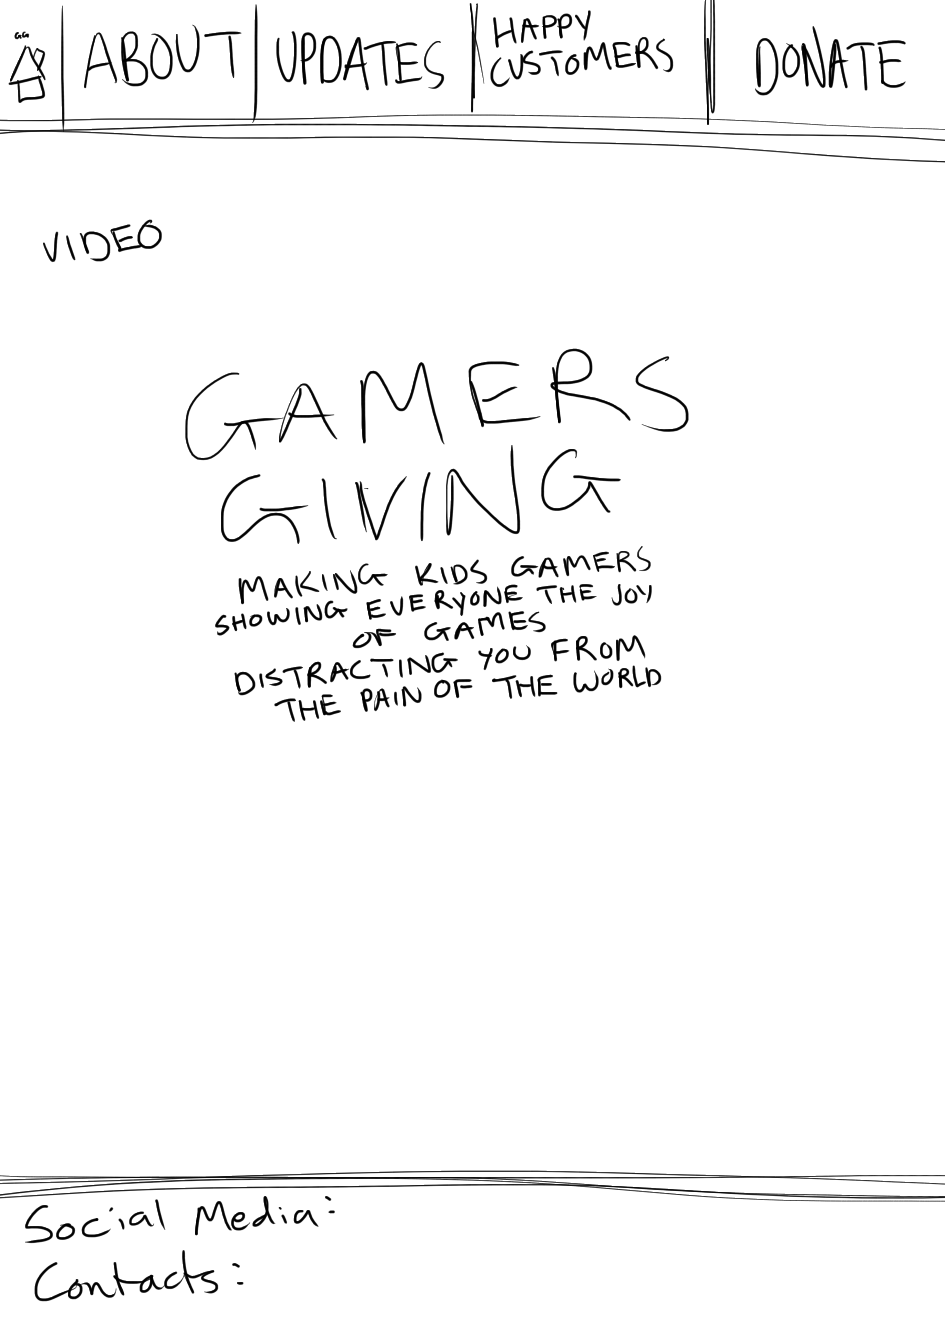 GG
ABOUT
UPDATES
HAPPY
CUSTOMERS
DONATE
VIDEO
GAMERS
GIVING
MAKING KIDS GAMERS
SHOWING EVERYONE THE JOY
OF GAMES
DISTRACTING YOU FROM
THE PAIN OF THE WORLD
Social Media:
Contacts: